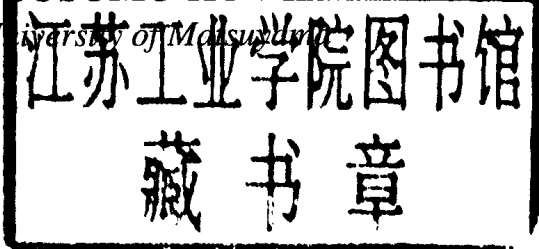 University of Matsuyama
江苏工业学院图书馆
藏书章